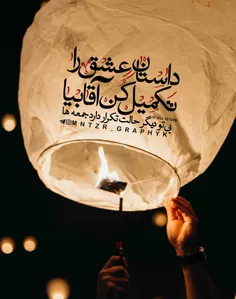 داستان عشق را
تکمیل کن آقا بیا
بی تو دیگر حالت تکرار دارد جمعه ها
@MNTZR_GRAPHYK